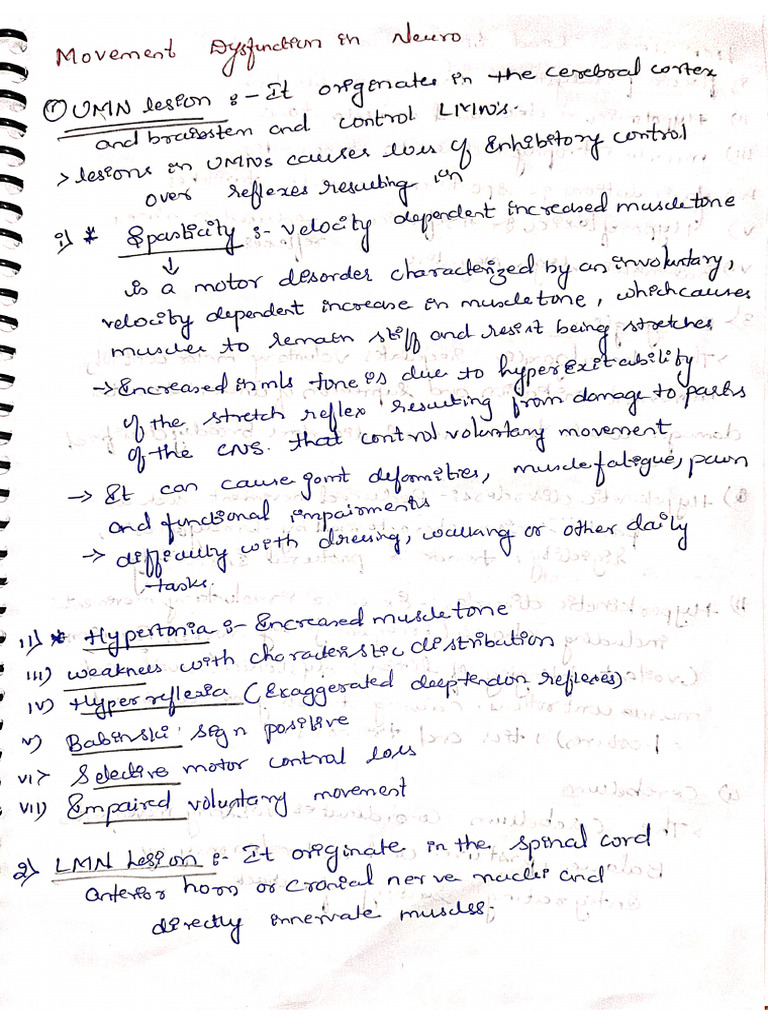 Movement Dysfunction in Neuro
① UMN lesion :- It originates in the cerebral cortex
and brainsten and control LMN's.
> lesions in UMNs causes loss of Enhibitory control
over reflexes resulting in
i) * Spasticity :- velocity dependent increased muscle tone
↓
is a motor disorder characterized by an involuntary,
velocity dependent increase in muscle tone, which causes
muscles to remain stiff and resist being stretches
→ Encreased in mls tone is due to hyperexitability
of the stretch reflex resulting from damage to parts
of the CNS. that control voluntary movement
→ It can cause joint deformities, muscle fatigue, pain
and functional impairments
→ difficulty with dressing, walking or other daily
tasks.
ii) * Hypertonia :- Encreased muscle tone
iii) weakness with characteristic distribution
iv) Hyper reflexia (Exaggerated deep tendon reflexes)
v) Babinski sign positive
vi> Selective motor control loss
vii) Empaired voluntary movement
2) LMN Lesion :- It originate in the spinal cord
anterior horn or cranial nerve nuclei and
directly innervate muscles.